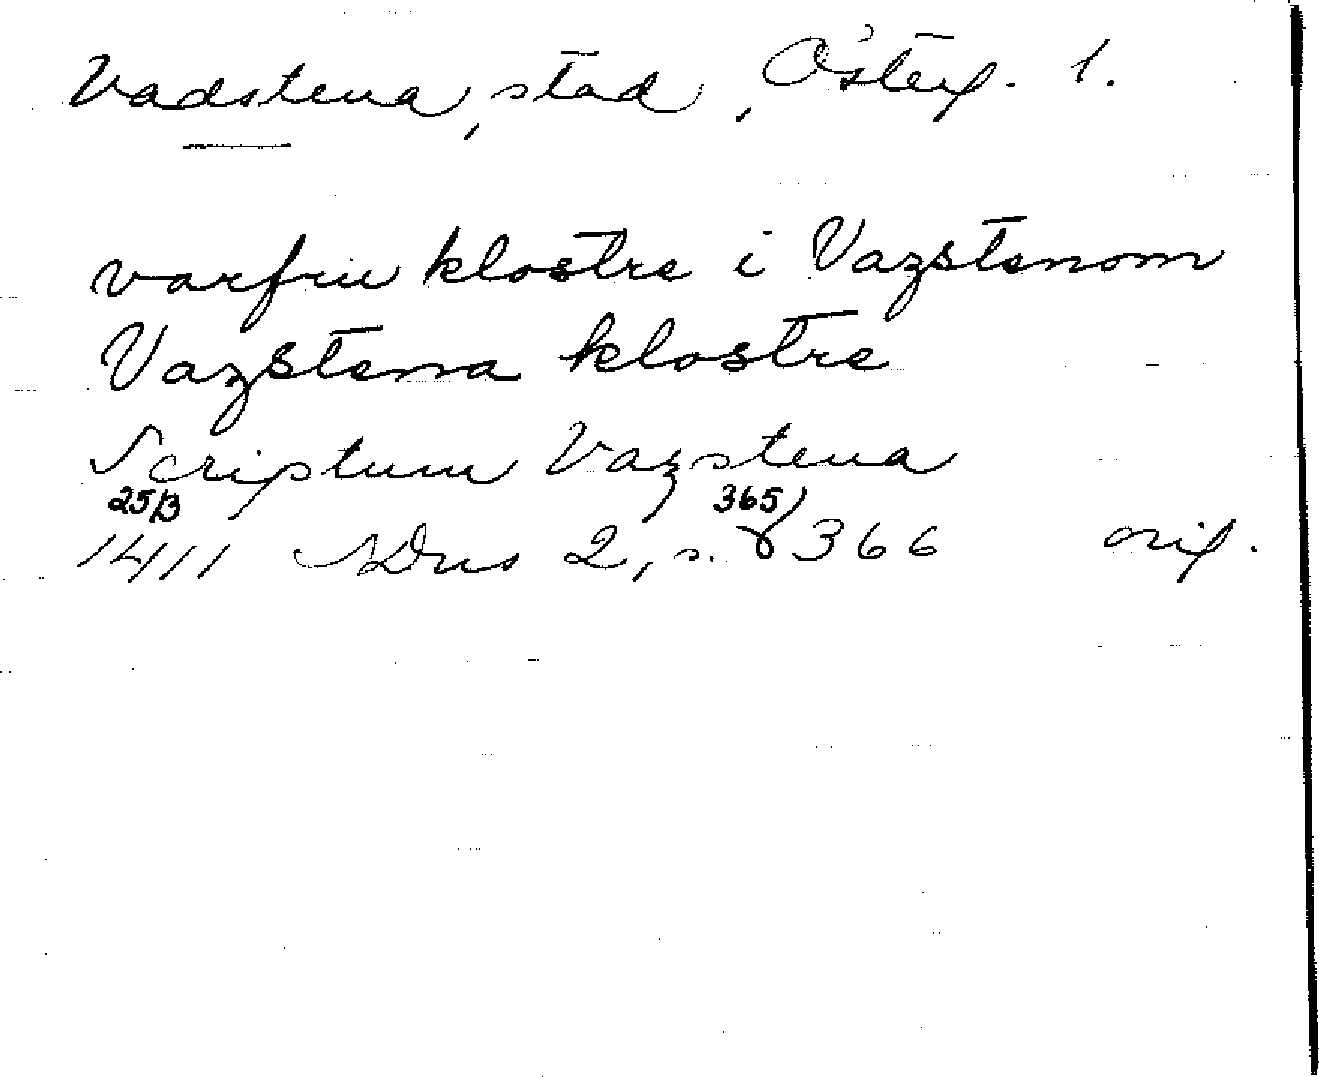 Vadstena, stad, Österg. l.
varfru klostre i Vazstenom
Vazstena klostre
Scriptum Vazstena
25/3 365/
1411 SDns 2, s. 366 orig.